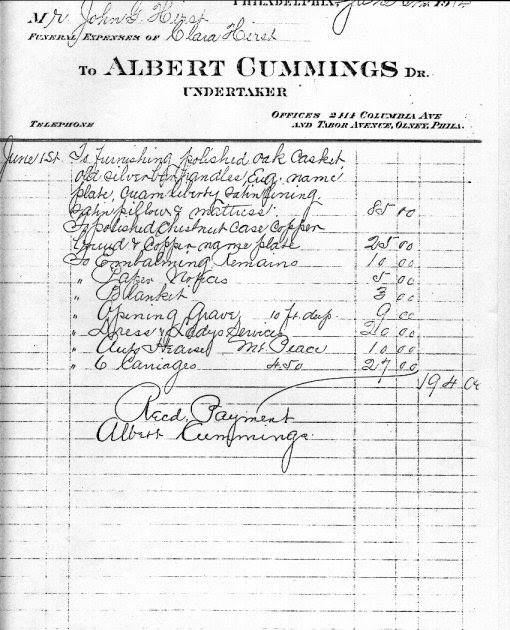 PHILADELPHIA, June
Mr. John G. Hirst
FUNERAL EXPENSES OF Clara Hirst
TO ALBERT CUMMINGS DR.
UNDERTAKER
OFFICES 2111 COLUMBIA AVE
TELEPHONE AND TABOR AVENUE, OLNEY, PHILA.
June 1st. To Furnishing polished Oak Casket
old silver bar handles, Eng. name
plate, lining.
Satin pillow & mattress 85 00
To polished Chestnut Case Copper
& Copper name plate 25 00
To Embalming Remains 10 00
" Paper Notices 5 00
" Blanket 3 00
" Opening Grave 10 ft. deep 9 00
" Dress & Ladys Services 20 00
" Auto Hearse Mt. Peace 10 00
" 6 Carriages 4.50 27 00
194 00
Recd. Payment
Albert Cummings